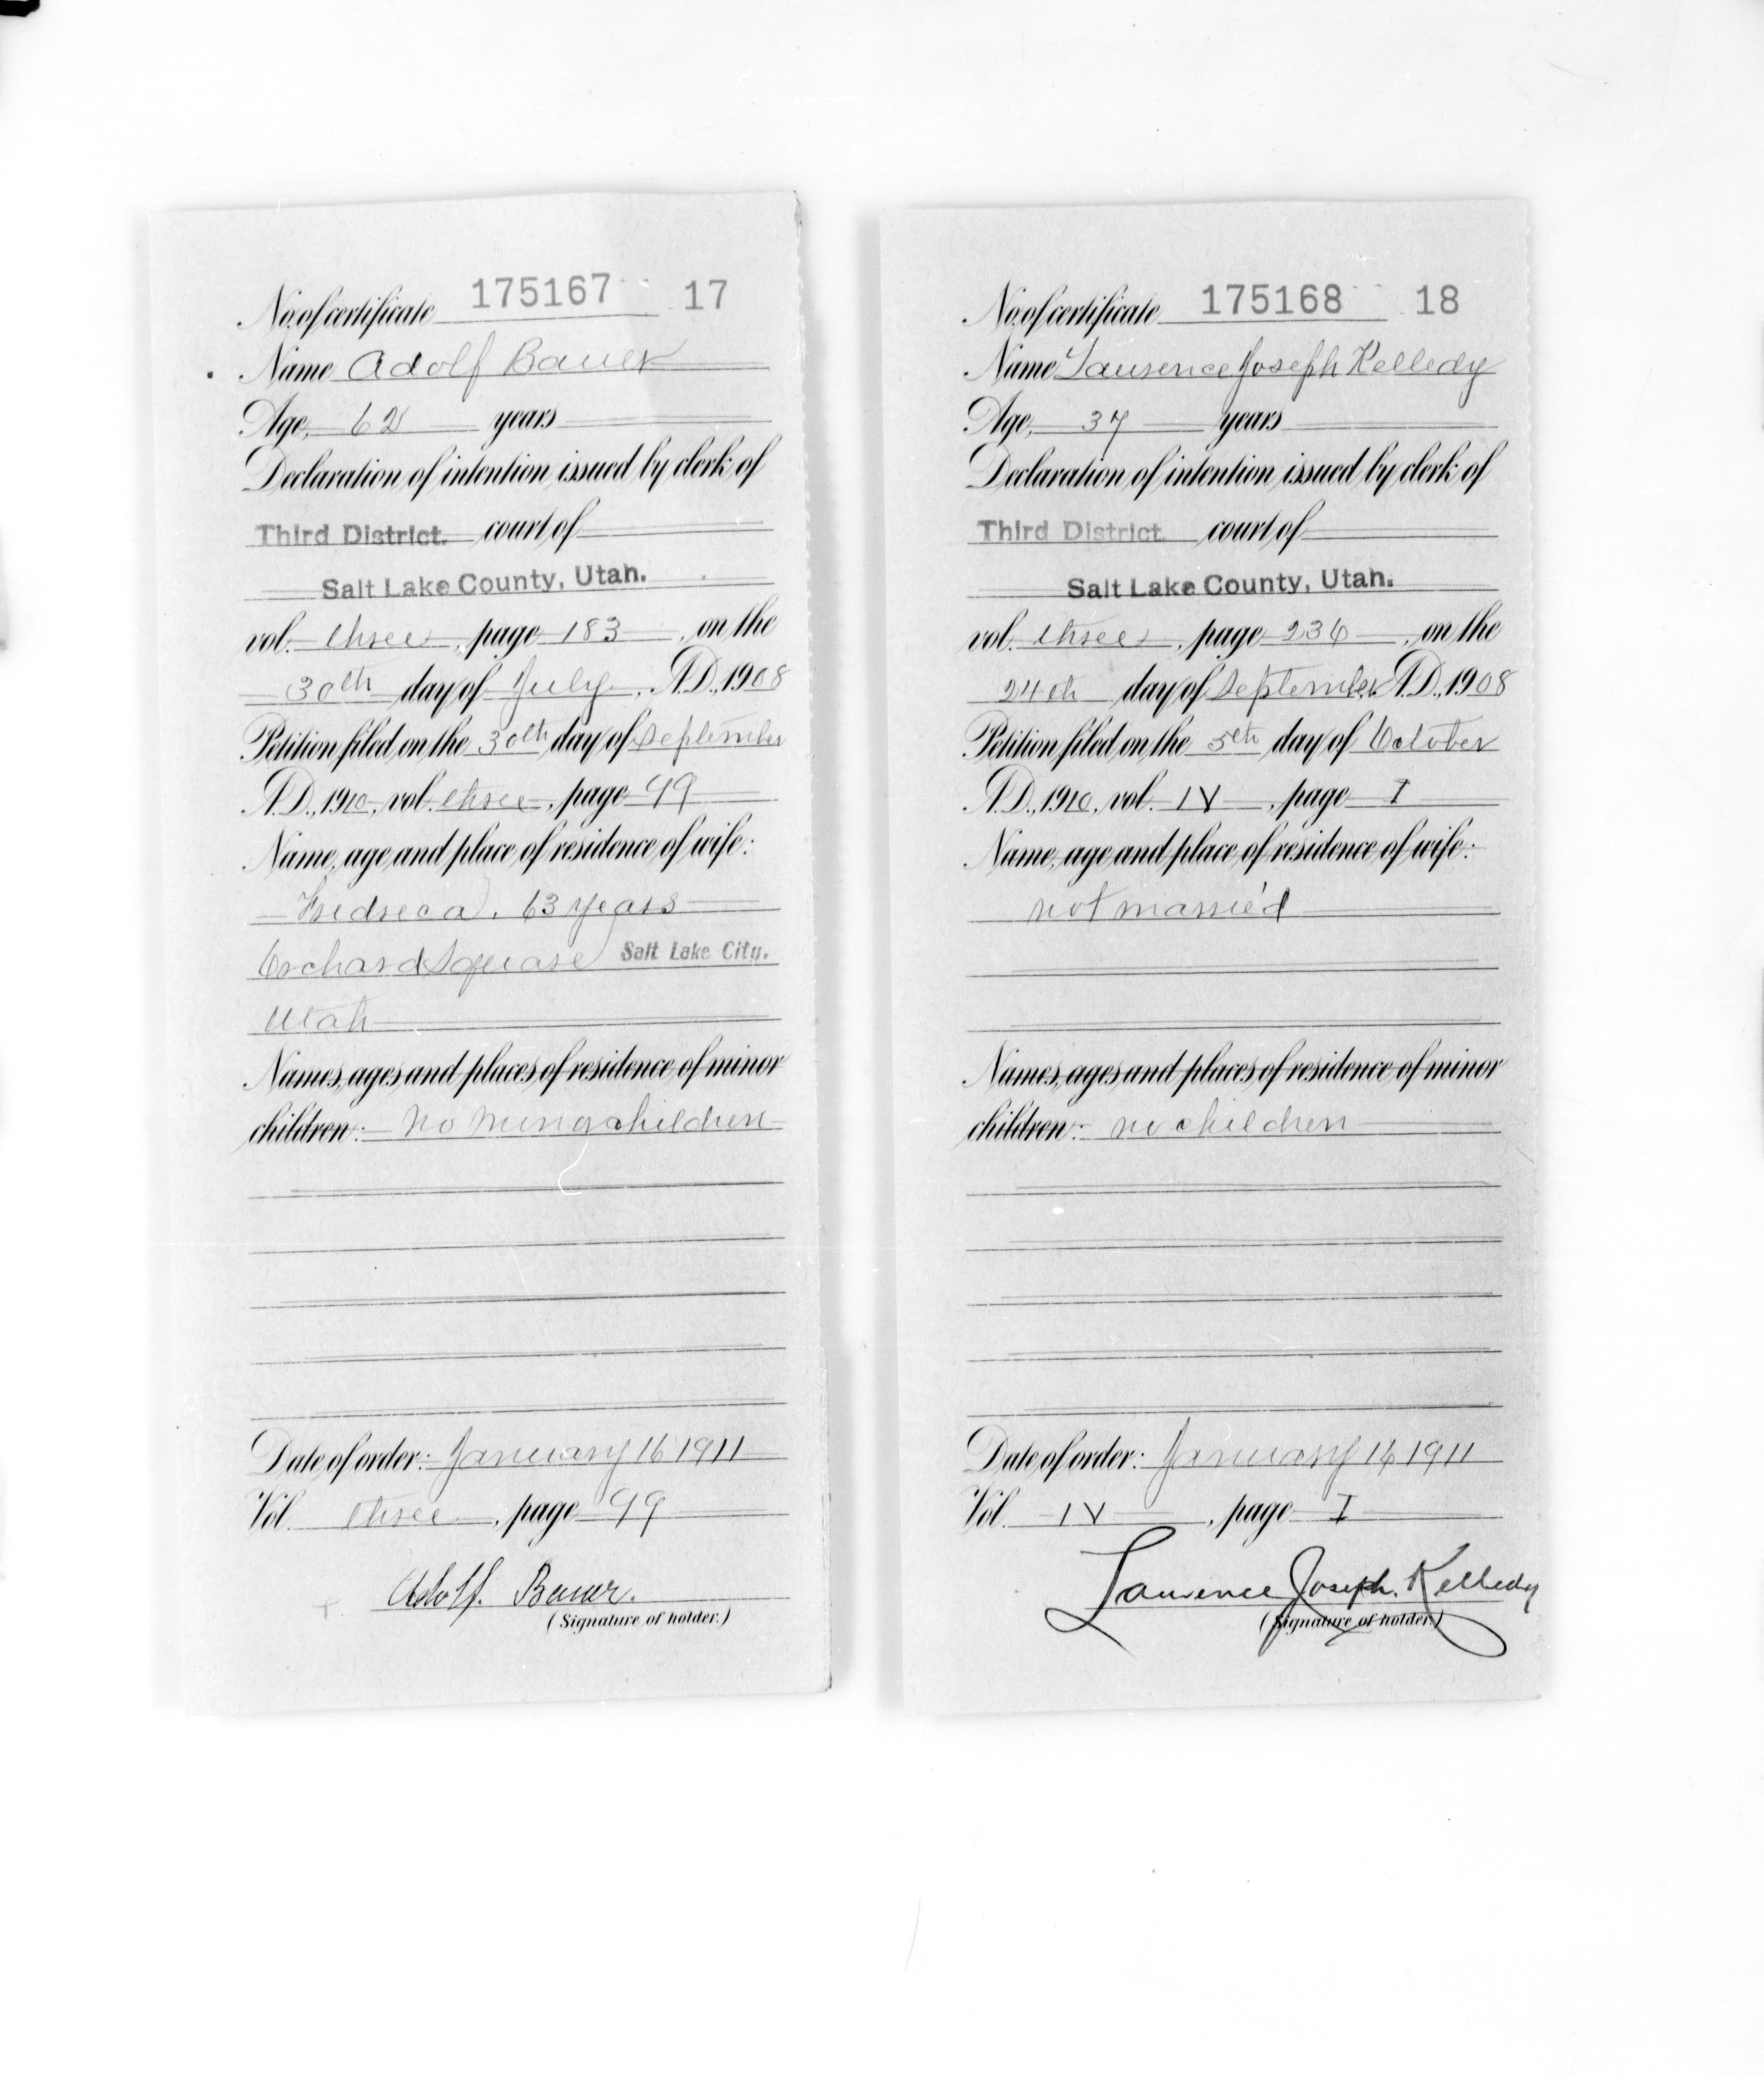 No. of certificate 175167 17
Name Adolf Bauer
Age, 62 years
Declaration of intention issued by clerk of
Third District. court of
Salt Lake County, Utah.
vol. three, page 183, on the
30th day of July, A.D., 1908
Petition filed on the 30th day of September
A.D., 1910, vol. three, page 99
Name, age and place of residence of wife:
Fredreca, 63 years
Orchard Square Salt Lake City.
Utah
Names, ages and places of residence of minor
children: No minor children
Date of order: January 16 1911
Vol. three, page 99
Adolf. Bauer.
(Signature of holder.)
No. of certificate 175168 18
Name Laurence Joseph Kelledy
Age, 37 years
Declaration of intention issued by clerk of
Third District. court of
Salt Lake County, Utah.
vol. three, page 236, on the
24th day of September A.D., 1908
Petition filed on the 5th day of October
A.D., 1910, vol. IV, page I
Name, age and place of residence of wife:
not married
Names, ages and places of residence of minor
children: no children
Date of order: January 16 1911
Vol. IV, page I
Laurence Joseph. Kelledy
(Signature of holder.)